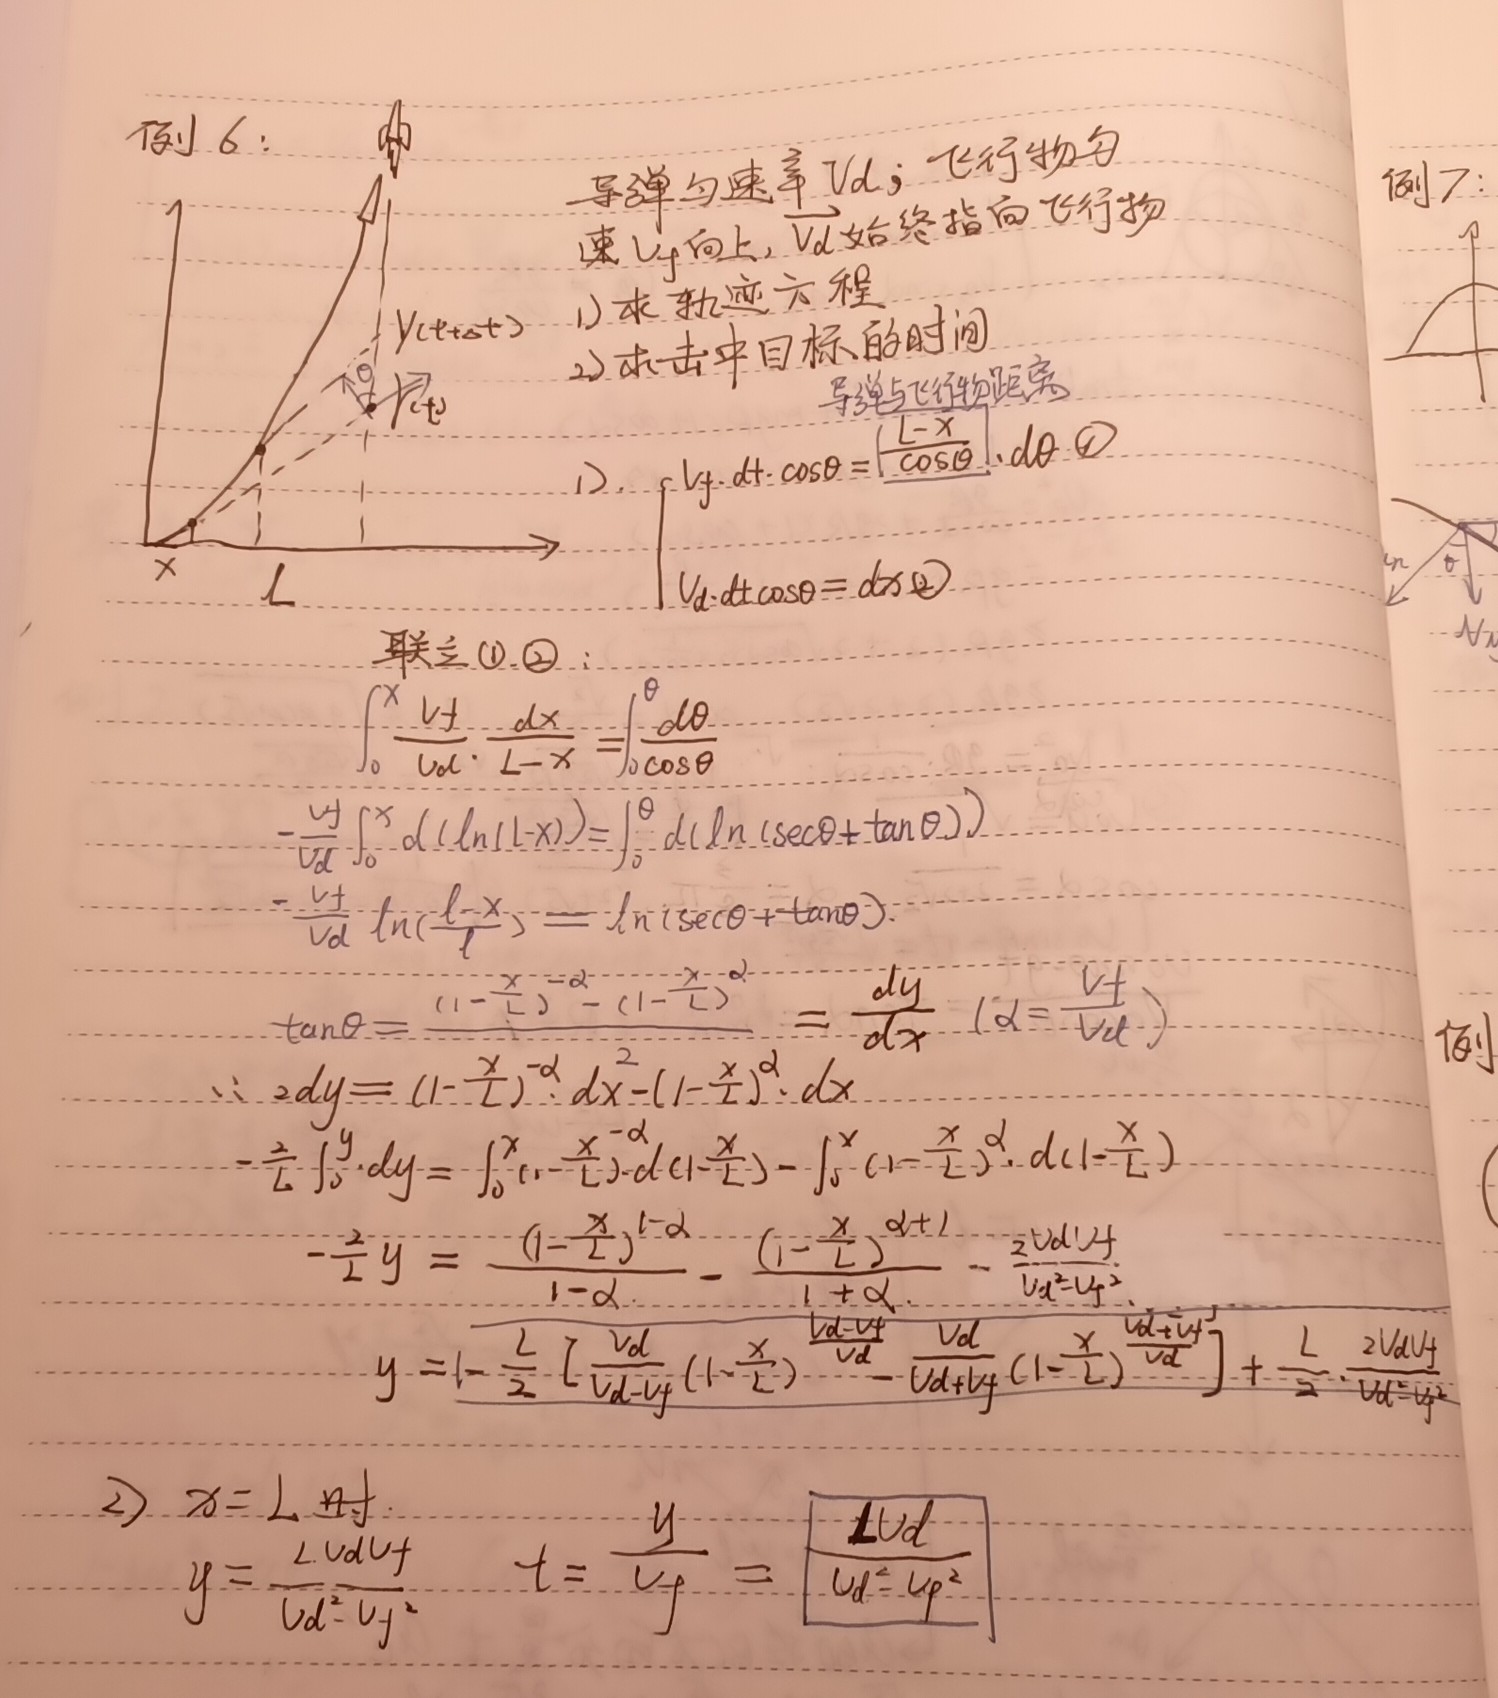 例6：
导弹匀速率Vd；飞行物匀
速Vf向上，Vd始终指向飞行物
1）求轨迹方程
2）求击中目标的时间
Y(t+Δt)
θ
Y(t)
x
L
导弹与飞行物距离
1）. Vf·dt·cosθ = (L-x)/cosθ · dθ ①
Vd·dt cosθ = dx ②
联立①②：
∫₀ˣ Vf/Vd · dx/(L-x) = ∫₀^θ dθ/cosθ
-Vf/Vd ∫₀ˣ d(ln(L-x)) = ∫₀^θ d(ln(secθ+tanθ))
-Vf/Vd ln((l-x)/l) = ln(secθ+tanθ).
tanθ = ((1-x/L)^-α - (1-x/L)^α)/2 = dy/dx (α = Vf/Vd)
∴ 2dy = (1-x/L)^-α · dx - (1-x/L)^α · dx
-2/L ∫₀^y · dy = ∫₀ˣ (1-x/L)^-α · d(1-x/L) - ∫₀ˣ (1-x/L)^α · d(1-x/L)
-2/L y = (1-x/L)^(1-α)/(1-α) - (1-x/L)^(α+1)/(1+α) - 2VdVf/(Vd²-Vf²)
y = -L/2 [Vd/(Vd-Vf) (1-x/L)^((Vd-Vf)/Vd) - Vd/(Vd+Vf) (1-x/L)^((Vd+Vf)/Vd)] + L/2 · 2VdVf/(Vd²-Vf²)
2） x=L时.
y = L·VdVf/(Vd²-Vf²) t = y/Vf = LVd/(Vd²-Vf²)
例7：
θ
例